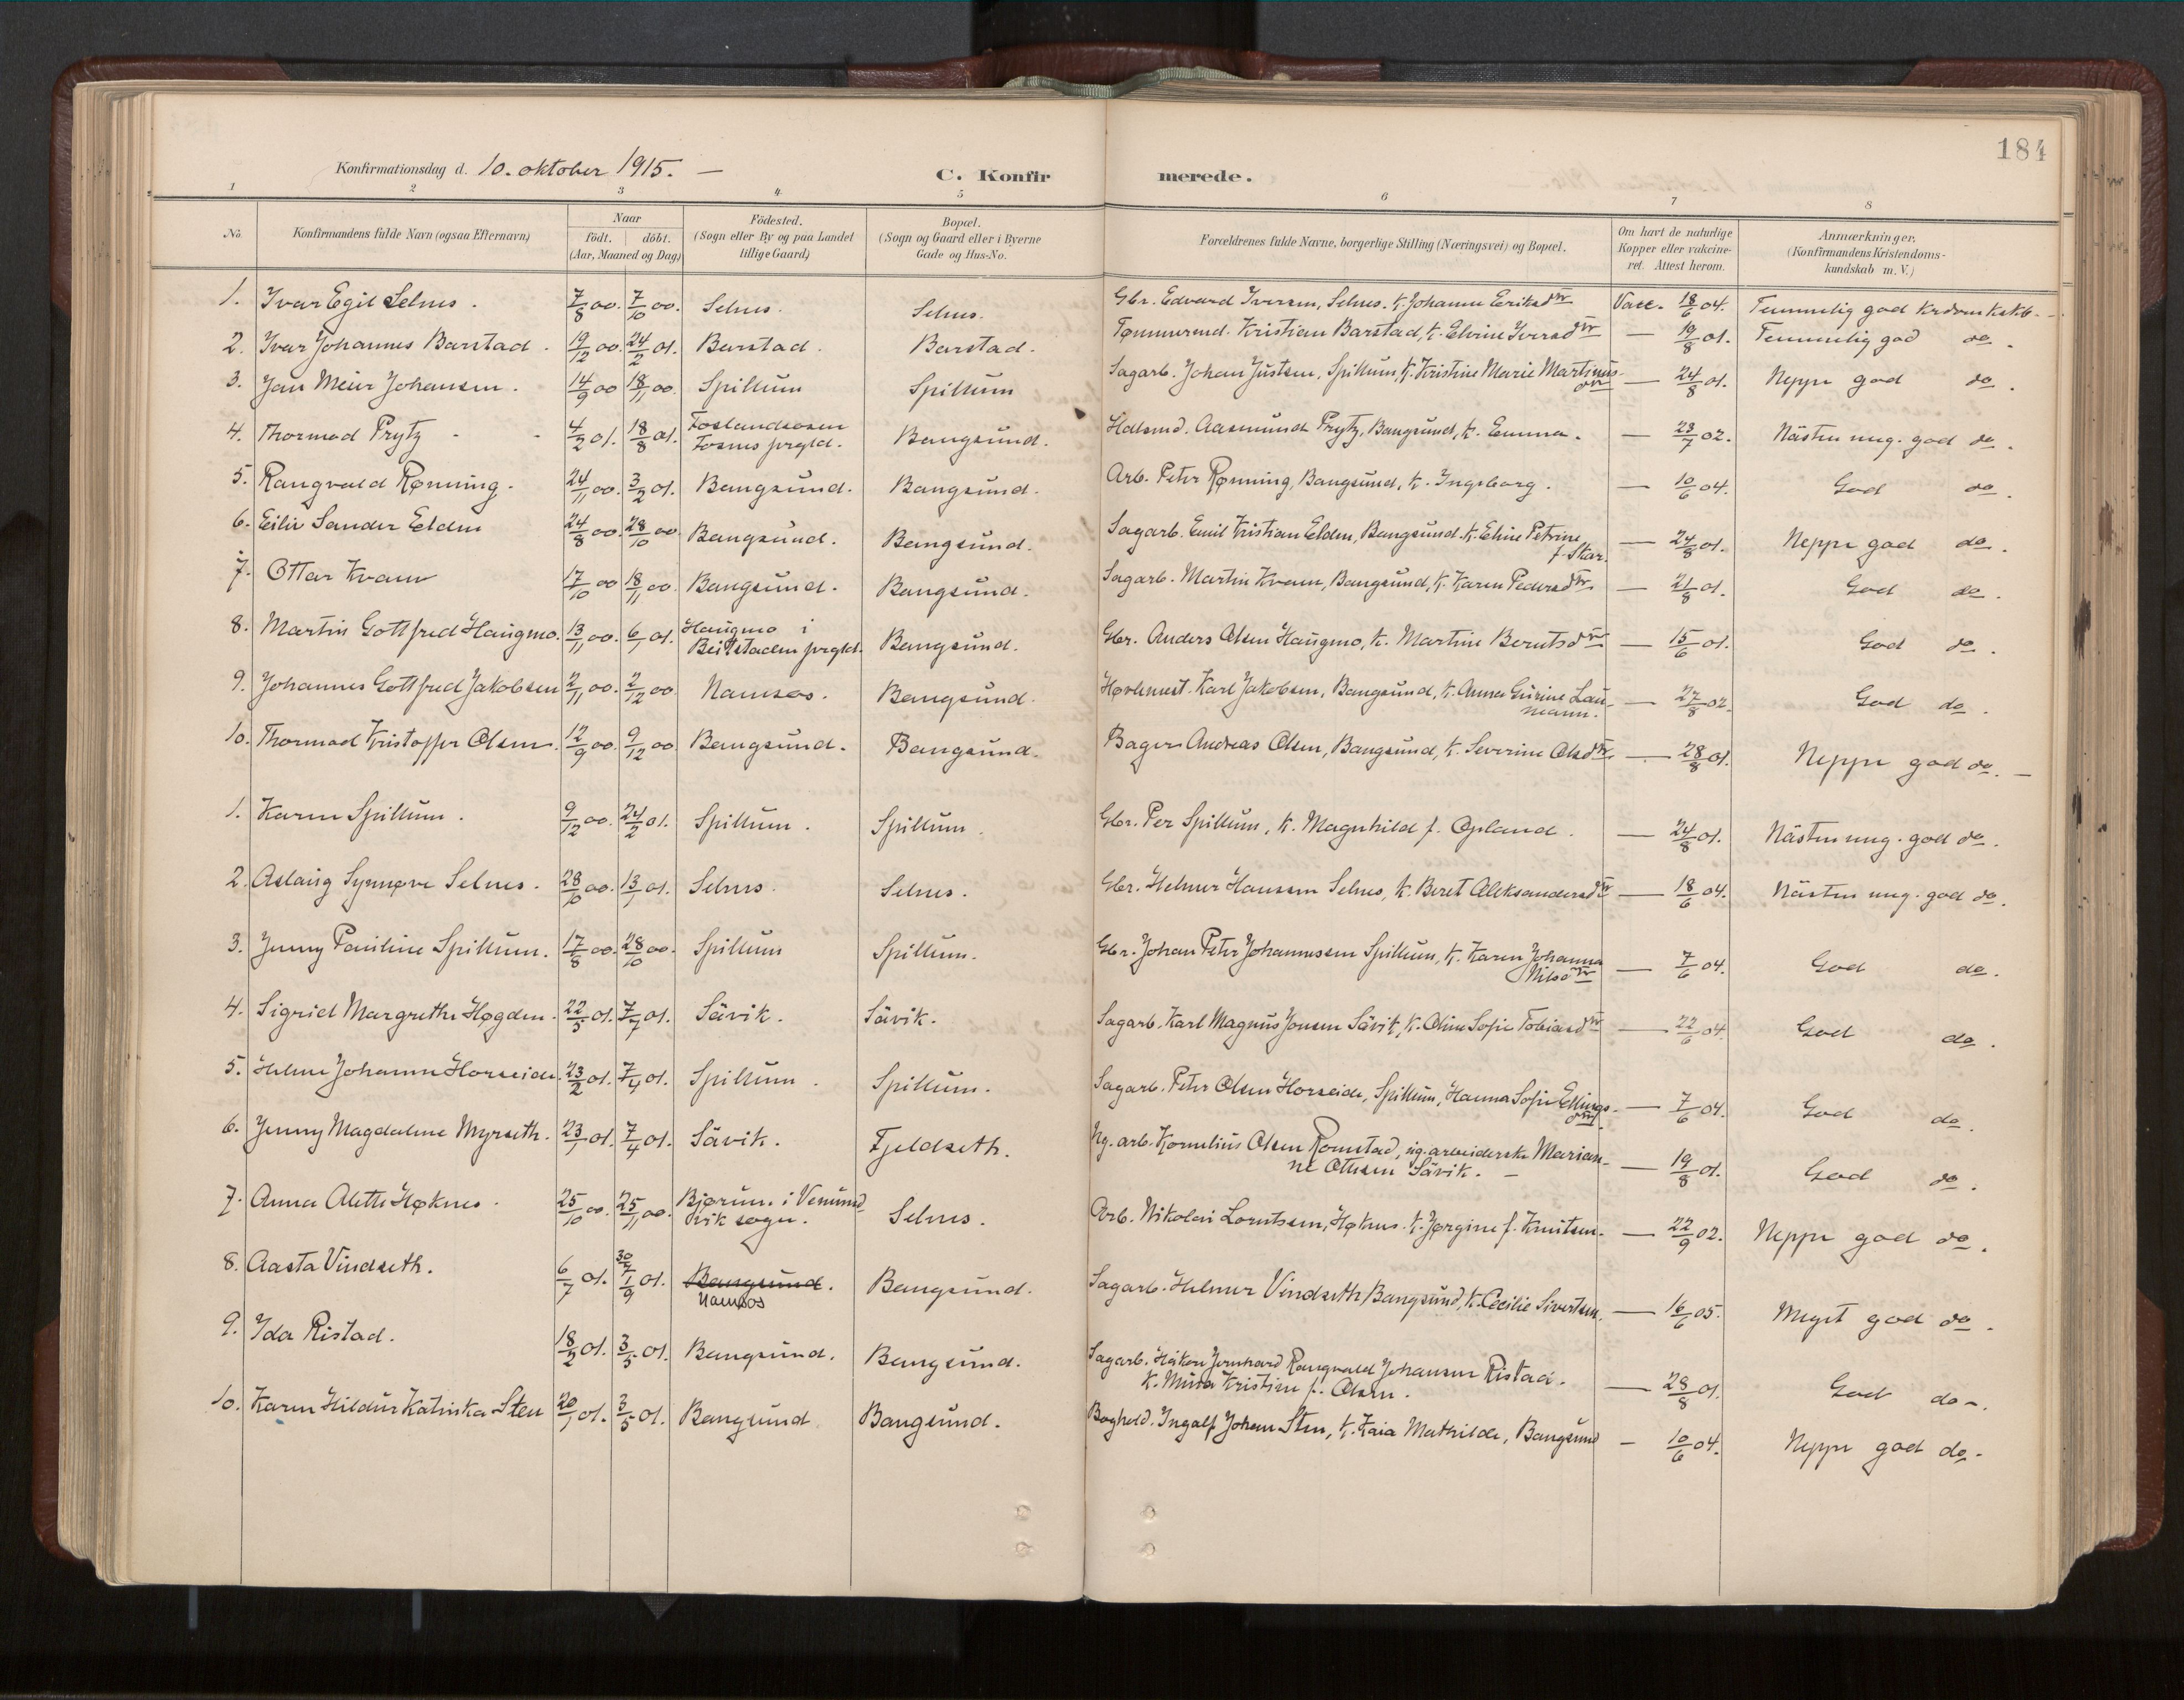 184
Konfirmationsdag d. 10. oktober 1915. —
C. Konfirmerede.
1 2 3 4 5 6 7 8
No. Konfirmandens fulde Navn (ogsaa Efternavn) Naar født. døbt. (Aar, Maaned og Dag) Fødested. (Sogn eller By og paa Landet tillige Gaard) Bopæl. (Sogn og Gaard eller i Byerne Gade og Hus-No. Forældrenes fulde Navne, borgerlige Stilling (Næringsvei) og Bopæl. Om havt de naturlige Kopper eller vakcineret. Attest herom. Anmærkninger. (Konfirmandens Kristendomskundskab m. V.)
1. Ivar Egil Selnes. 7/8 00. 7/10 00. Selnes. Selnes. Gbr. Edvard Iversen, Selnes. K. Johanne Eriksdtr Vacc. 18/6 04. Temmelig god krdomksk.
2. Ivar Johannes Barstad. 19/12 00. 24/2 01. Barstad. Barstad. Tømmermd. Kristian Barstad, K. Elvine Iversdtr — 19/8 01. Temmelig god do.
3. Jan Meier Johansen. 14/9 00 18/11 00. Spillum Spillum Sagarb. Johan Justsen, Spillum, K. Kristine Marie Martinusdtr — 24/8 01. Neppe god do.
4. Thormod Prytz 4/2 01. 18/8 01. Foslandsosen Fosnes prgld. Bangsund. Hdlsmd. Aasmund Prytz, Bangsund, K. Emma. — 23/7 02. Nästen mg. god do.
5. Rangvald Rønning. 24/11 00. 3/2 01. Bangsund. Bangsund. Arb. Peter Rønning, Bangsund, K. Ingeborg. — 10/6 04. God do.
6. Eiliv Sander Elden 24/8 00. 28/10 00. Bangsund. Bangsund. Sagarb. Emil Kristian Elden, Bangsund. K. Eline Petrine f. Skar. — 24/8 01. Neppe god do.
7. Ottar Kvam 17/10 00 18/11 00. Bangsund. Bangsund. Sagarb. Martin Kvam, Bangsund, K. Karen Pedersdtr — 21/8 01. God do.
8. Martin Gottfred Haugmo. 13/11 00. 6/1 01. Haugmo i Beitstaden prgld. Bangsund. Gbr. Anders Olsen Haugmo, K. Martine Berntsdtr — 15/6 01. God do.
9. Johannes Gottfred Jakobsen 2/11 00. 2/12 00 Namsos. Bangsund. Høvlemest. Karl Jakobsen, Bangsund, K. Anna Gurine Laumann. — 27/8 02. God do.
10. Thormod Kristoffer Olsen. 12/9 00. 9/12 00 Bangsund. Bangsund. Bager Andreas Olsen, Bangsund, K. Severine Olsdtr — 28/8 01. Neppe god do. —
1. Karen Spillum. 9/12 00. 24/2 01. Spillum. Spillum. Gbr. Per Spillum, K. Magnhild f. Opland. — 24/8 01. Nästen mg. god do.
2. Aslaug Synnøve Selnes. 28/10 00. 13/1 01. Selnes. Selnes. Gbr. Helmer Hansen Selnes, K. Beret Aleksandersdtr — 18/6 04. Nästen mg. god do.
3. Jenny Pauline Spillum. 17/8 00. 28/10 00. Spillum Spillum. Gbr. Johan Peter Johannessen Spillum, K. Karen Johanna Nilsdtr — 7/6 04. God do.
4. Sigrid Margrethe Høgden. 22/5 01. 7/7 01. Sävik. Sävik. Sagarb. Karl Magnus Jonsen Sävik, K. Oline Sofie Tobiasdtr — 22/6 04. God do.
5. Helene Johanne Horseide. 23/2 01. 7/4 01. Spillum. Spillum. Sagarb. Peter Olsen Horseide, Spillum, Hanna Sofie Ellingsdtr. — 7/6 04. God do.
6. Jenny Magdalene Myrseth. 23/1 01. 7/4 01. Sävik. Fjeldseth. Ug. arb. Kornelius Olsen Romstad, ug. arbeiderske Marianne Ottesen Sävik. — — 19/8 01. God do.
7. Anna Alette Høknes. 25/10 00. 25/11 00. Bjørum i Vemundvik sogn. Selnes. Arb. Nikolai Lorntsen, Høknes. K. Jørgine f. Knutsen. — 22/9 02. Neppe god do.
8. Aasta Vindseth. 6/7 01. 30/7 1/9 01. Bangsund. Namsos Bangsund. Sagarb. Helmer Vindseth, Bangsund, K. Cecilie Sivertsen. — 16/6 05. Meget god do.
9. Ida Ristad. 18/2 01. 3/5 01. Bangsund. Bangsund. Sagarb. Håkon Jernhard Rangvald Johansen Ristad. K. Mina Kristine f. Olsen. — 28/8 01. God do.
10. Karen Hildur Katinka Sten 20/1 01. 3/5 01. Bangsund Bangsund. Boghold. Ingolf Johan Sten, K. Kaia Mathilde, Bangsund — 10/6 04. Neppe god do.